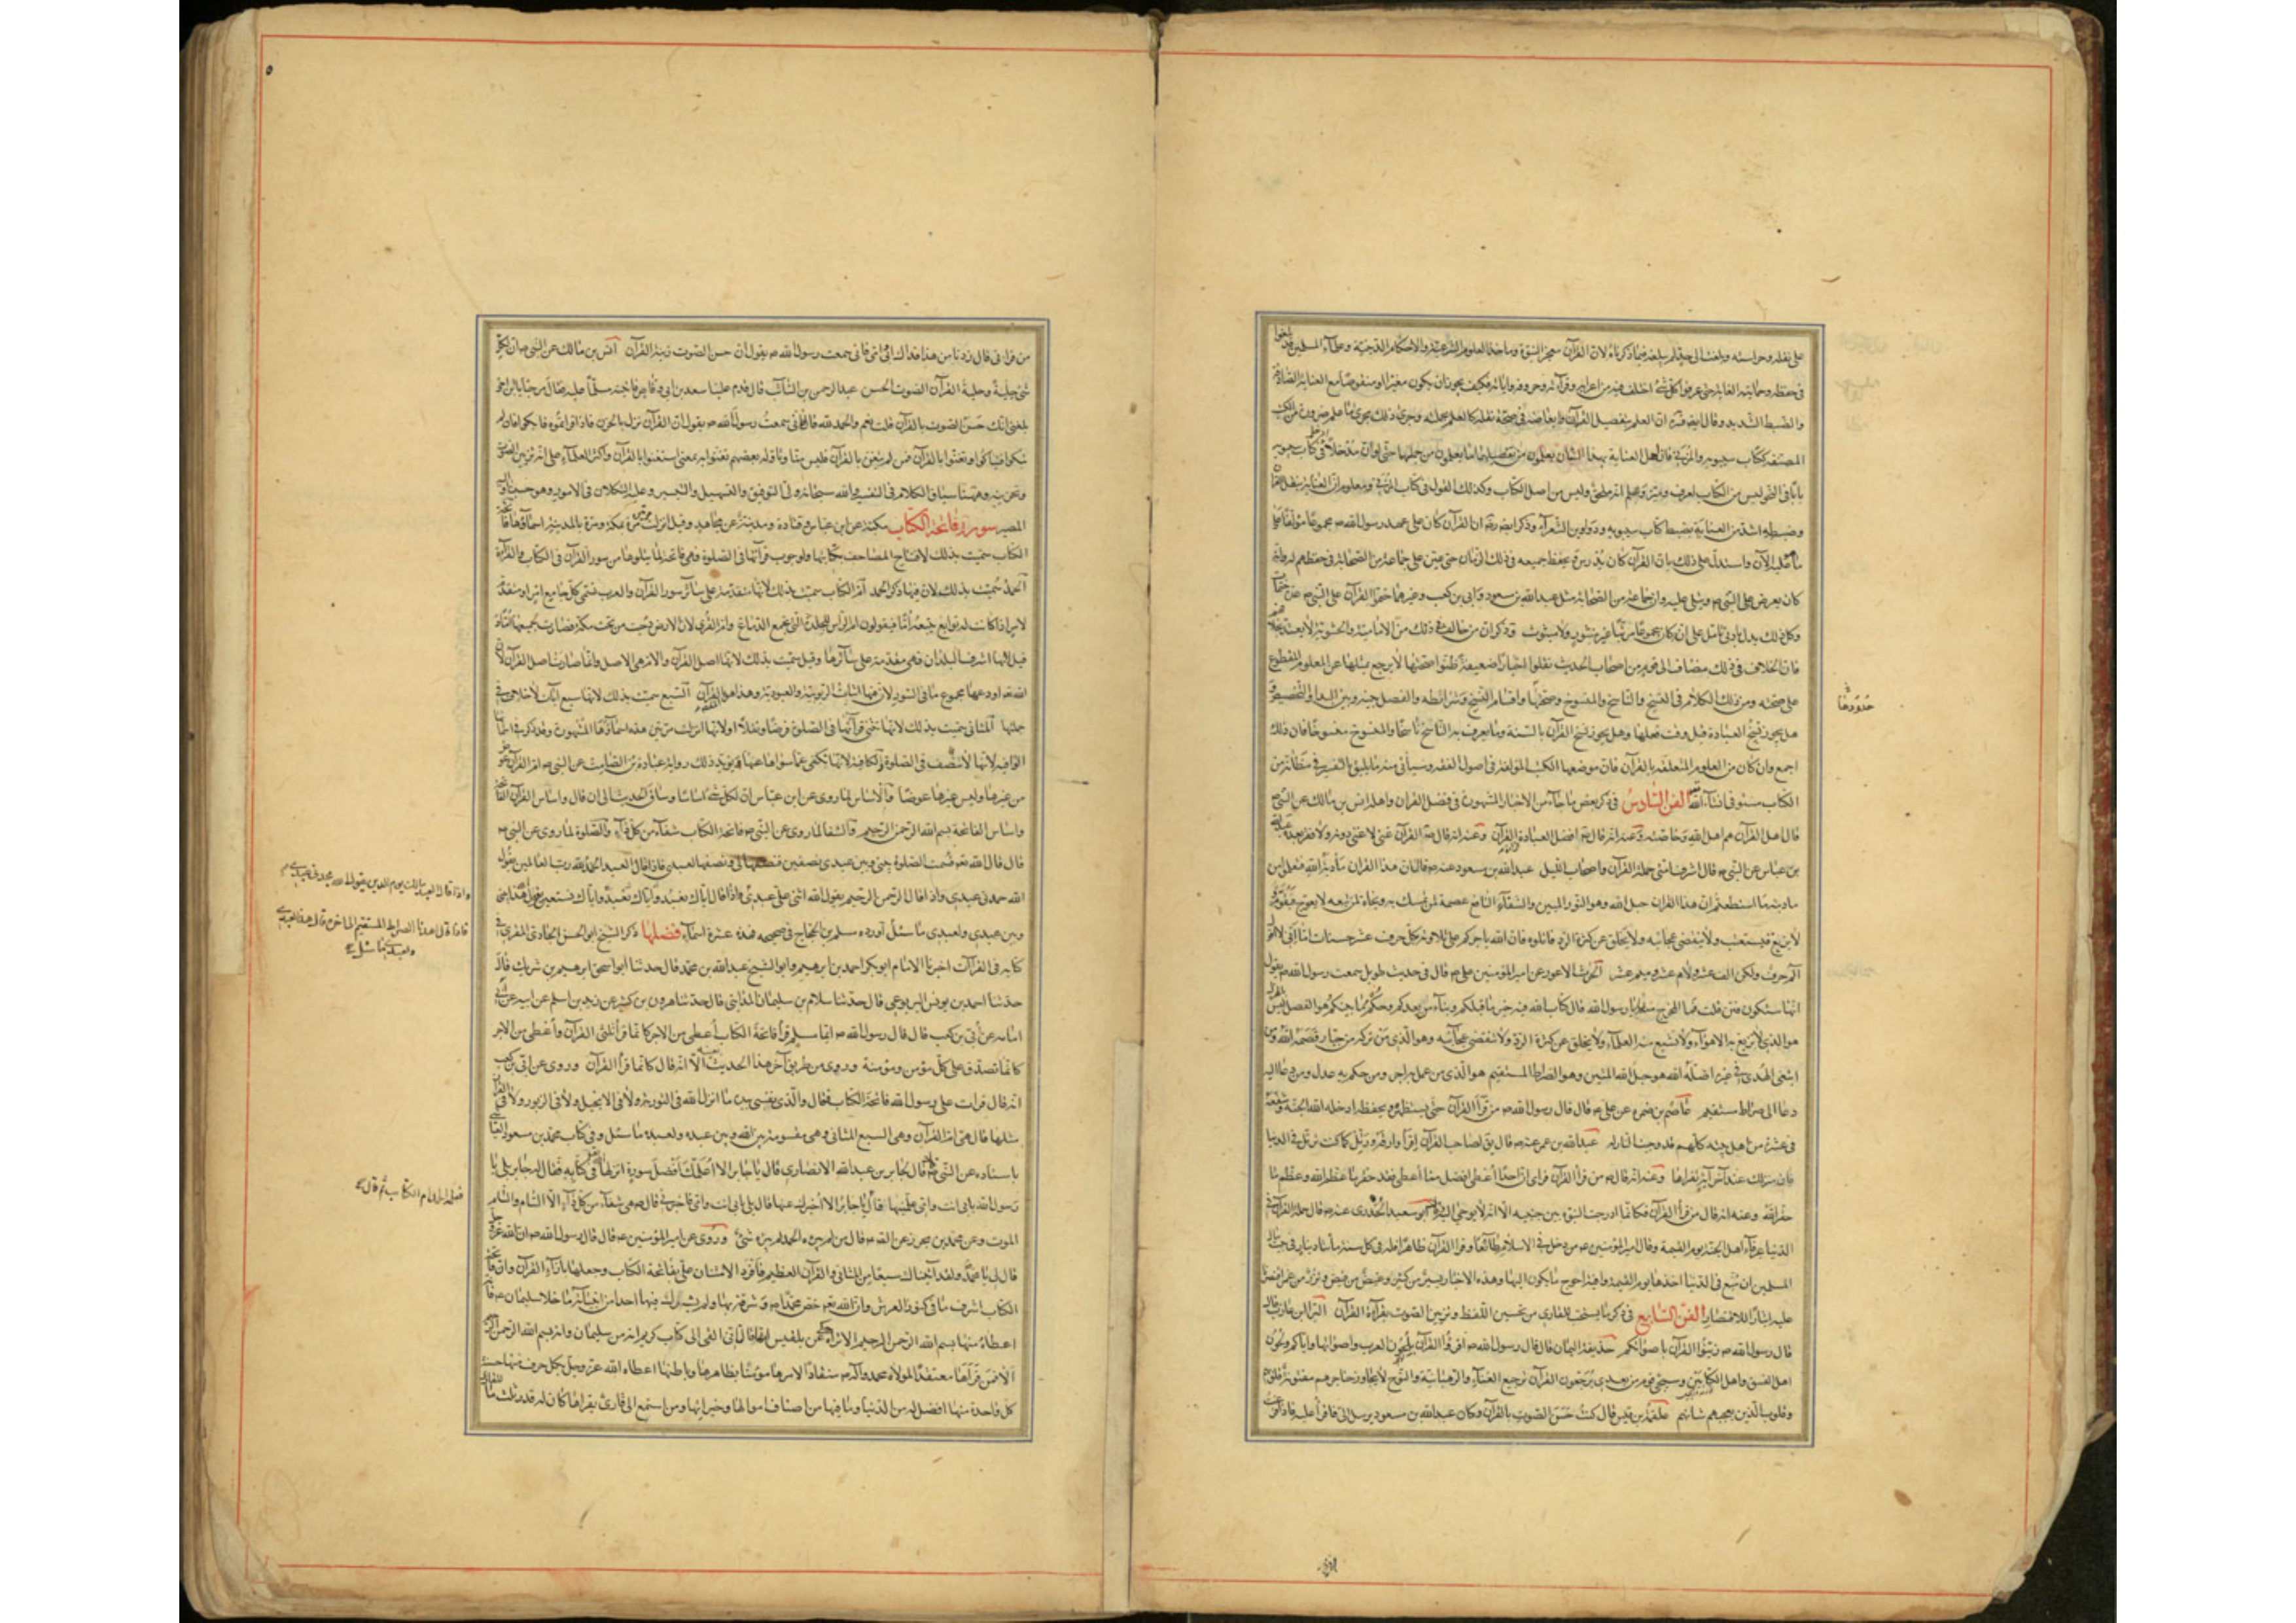 على نقله وحراسته وبلغت الى حد لم يبلغه فيما ذكرناه لان القرآن معجز النبوة وماخذ العلوم الشرعية والاحكام الدينية وعلماء المسلمين قد بلغوا
في حفظه وحمايته الغاية حتى عرفوا كل شئ اختلف فيه من اعرابه وقرآءته وحروفه واياته فكيف يجوز ان يكون مغيرا او منقوصا مع العناية الصادقة
والضبط الشديد وقال ايضا قده ان العلم بتفصيل القرآن وابعاضه في صحة نقله كالعلم بجملته وجرى ذلك مجرى ما علم ضرورة من الكتب
المصنفة ككتاب سيبويه والمزني فان اهل العناية بهذا الشان يعلمون من تفصيلهما ما يعلمون من جملتهما حتى لو ان مدخلا ادخل في كتاب سيبويه
بابا في النحو ليس من الكتاب لعرف وميز وعلم انه ملحق وليس من اصل الكتاب وكذلك القول في كتاب المزني ومعلوم ان العناية بنقل القرآن
وضبطه اشد من العناية بضبط كتاب سيبويه ودواوين الشعرآء وذكر ايضا رضه ان القرآن كان على عهد رسول الله ص مجموعا مؤلفا على
ما عليه الآن واستدل على ذلك بان القرآن كان يدرس ويحفظ جميعه في ذلك الزمان حتى عين على جماعة من الصحابة في حفظهم له وانه
كان يعرض على النبي ص ويتلى عليه وان جماعة من الصحابة مثل عبد الله بن مسعود وابي بن كعب وغيرهما ختموا القرآن على النبي ص عدة ختمات
وكل ذلك يدل بادنى تامل على انه كان مجموعا مرتبا غير منثور ولا مبثوث وذكر ان من خالف في ذلك من الامامية والحشوية لا يعتد بخلافهم
فان الخلاف في ذلك مضاف الى قوم من اصحاب الحديث نقلوا اخبارا ضعيفة ظنوا صحتها لا يرجع بمثلها عن المعلوم المقطوع
على صحته ومن ذلك الكلام في النسخ والناسخ والمنسوخ وصحتها واقسام النسخ وشرائطه والفصل بينه وبين البدا والتخصيص و
هل يجوز نسخ العبادة قبل وقت فعلها وهل يجوز نسخ القرآن بالسنة وما يعرف به الناسخ ناسخا والمنسوخ منسوخا فان ذلك
اجمع وان كان من العلوم المتعلقة بالقرآن فان موضعها الكتب المؤلفة في اصول الفقه وسيأتي منه ما يليق بالتفسير في مظانه من
الكتاب مستوفى انشاء الله الفن السادس في ذكر بعض ما جاء من الاخبار المشهورة في فضل القران واهله انس بن مالك عن النبي ص
قال اهل القرآن هم اهل الله وخاصته وعنه انه قال ص افضل العبادة القرآن وعنه انه قال ص القرآن غنى لا غنى دونه ولا فقر بعده عبد الله
بن عباس عن النبي ص قال اشراف امتي حملة القرآن واصحاب الليل عبد الله بن مسعود عنه ص قال ان هذا القران مأدبة الله فتعلموا من
مادبته ما استطعتم ان هذا القران حبل الله وهو النور المبين والشفاء النافع عصمة لمن تمسك به ونجاة لمن تبعه لا يعوج فيقوم و
لا يزيغ فيستعتب ولا ينقضي عجائبه ولا يخلق عن كثرة الرد فاتلوه فان الله ياجركم على تلاوته بكل حرف عشر حسنات اما اني لا اقول
الم حرف ولكن الف عشر ولام عشر وميم عشر الحرث الاعور عن امير المؤمنين علي ع قال في حديث طويل سمعت رسول الله ص يقول
انها ستكون فتن قلت فما المخرج منها يا رسول الله قال كتاب الله فيه خبر ما قبلكم ونباء من بعدكم وحكم ما بينكم هو الفصل ليس بالهزل
هو الذي لا تزيغ به الاهوآء ولا تشبع منه العلماء ولا يخلق عن كثرة الرد ولا تنقضي عجآئبه وهو الذي من تركه من جبار قصمه الله ومن
ابتغى الهدى في غيره اضله الله هو حبل الله المتين وهو الصراط المستقيم هو الذي من عمل به اجر ومن حكم به عدل ومن دعا اليه
دعا الى صراط مستقيم عاصم بن ضمرة عن علي ع قال قال رسول الله ص من قرأ القرآن حتى يستظهره ويحفظه ادخله الله الجنة وشفعه
في عشرة من اهل بيته كلهم قد وجبت لهم النار عبد الله بن عمر عنه ص قال يق لصاحب القرآن اقرأ وارق ورتل كما كنت ترتل في الدنيا
فان منزلك عند آخر آية تقراها وعنه انه قال ص من قرأ القرآن فراى ان احدا اعطي افضل مما اعطي فقد حقر ما عظم الله وعظم ما
حقر الله وعنه انه قال من قرأ القرآن فكانما ادرجت النبوة بين جنبيه الا انه لا يوحى اليه ابو سعيد الخدري عنه ص قال حملة القرآن في
الدنيا عرفاء اهل الجنة يوم القيمة وقال امير المؤمنين ع من دخل في الاسلام طائعا وقرا القرآن ظاهرا فله في كل سنة مأتا دينار في بيت مال
المسلمين ان منع في الدنيا اخذها يوم القيمة وافية احوج ما يكون اليها وهذه الاخبار يسير من كثير وغيض من فيض
عليه ايثارا للاختصار الفن السابع في ذكر ما يستحب للقاري من تحسين اللفظ وتزيين الصوت بقرآءة القرآن البرا بن عازب قال
قال رسول الله ص زينوا القرآن باصواتكم حذيفة اليمان قال قال رسول الله ص اقرؤا القرآن بلحون العرب واصواتها واياكم ولحون
اهل الفسق واهل الكتابين وسيجئ قوم من بعدي يرجعون القرآن ترجيع الغناء والرهبانية والنوح لا يجاوز حناجرهم مفتونة قلوبهم
وقلوب الذين يعجبهم شانهم علقمة بن قيس قال كنت حسن الصوت بالقرآن وكان عبد الله بن مسعود يرسل الي فاقرأ عليه فاذا فرغت
حدودها
من قراءتي قال زدنا من هذا فداك ابي وامي فاني سمعت رسول الله ص يقول ان حسن الصوت زينة القرآن انس بن مالك عن النبي ص ان لكل
شئ حلية وحلية القرآن الصوت الحسن عبد الرحمن بن السائب قال قدم علينا سعد بن ابي وقاص فاتيته مسلما عليه فقال مرحبا يا بن اخي
بلغني انك حسن الصوت بالقرآن قلت نعم والحمد لله قال فاني سمعت رسول الله ص يقول ان القرآن نزل بالحزن فاذا قراتموه فابكوا فان لم
تبكوا فتباكوا وتغنوا بالقرآن فمن لم يتغن بالقرآن فليس منا وتاوله بعضهم تغنوا به بمعنى استغنوا بالقرآن واكثر العلماء على انه تزيين الصوت
المصير سورة فاتحة الكتاب مكية عن ابن عباس وقتادة ومدنية عن مجاهد وقيل انزلت مرتين مرة بمكة ومرة بالمدينة اسمآؤها فاتحة
الكتاب سميت بذلك لافتتاح المصاحف بكتابتها ولوجوب قرآءتها في الصلوة فهي فاتحة لما يتلوها من سور القرآن في الكتاب والقرآءة
الحمد سميت بذلك لان فيها ذكر الحمد ام الكتاب سميت بذلك لانها متقدمة على سآئر سور القرآن والعرب تسمي كل جامع امر او متقدم
لامر اذا كانت له توابع تتبعه اما فيقولون ام الراس للجلدة التي تجمع الدماغ وام القرى لان الارض دحيت من تحت مكة فصارت لجميعها اما و
قيل لانها اشرف البلدان فهي مقدمة على سآئرها وقيل سميت بذلك لانها اصل القرآن والام هي الاصل وانما صارت اصل القرآن لان
الله تع اودعها مجموع ما في السور لان فيها اثبات الربوبية والعبودية وهذا هو المقصود بالقرآن السبع سميت بذلك لانها سبع ايات لا خلاف في
جملتها المثاني سميت بذلك لانها تثنى قرآءتها في الصلوة فرضا ونفلا او لانها انزلت مرتين هذه اسمآؤها المشهورة وقد ذكر في اسمائها
الوافية لانها لا تنتصف في الصلوة والكافية لانها تكفي عما سواها ولا يكفي ما سواها عنها ويؤيد ذلك رواية عبادة بن الصامت عن النبي ص ام القرآن عوض
من غيرها وليس غيرها عوضا والاساس لما روي عن ابن عباس ان لكل شئ اساسا وساق الحديث الى ان قال واساس القرآن الفاتحة
واساس الفاتحة بسم الله الرحمن الرحيم والشفا لما روي عن النبي ص فاتحة الكتاب شفاء من كل دآء والصلوة لما روي عن النبي ص
قال قال الله تع قسمت الصلوة بيني وبين عبدي نصفين فنصفها لي ونصفها لعبدي فاذا قال العبد الحمد لله رب العالمين يقول
الله حمدني عبدي واذا قال الرحمن الرحيم يقول الله اثنى علي عبدي واذا قال اياك نعبد واياك نستعين يقول الله هذا بيني
وبين عبدي ولعبدي ما سئل اورده مسلم بن الحجاج في صحيحه فهذه عشرة اسماء فضلها ذكر الشيخ ابو الحسن الخبازي المقري في
كتابه في القرآت اخبرنا الامام ابو بكر احمد بن ابرهيم وابو الشيخ عبد الله بن محمد قال حدثنا ابو اسحق ابرهيم بن شريك قال
حدثنا احمد بن يونس اليربوعي قال حدثنا سلام بن سليمان المدايني قال حدثنا هرون بن كثير عن زيد بن اسلم عن ابيه عن ابي
امامة عن ابي بن كعب قال قال رسول الله ص ايما مسلم قرأ فاتحة الكتاب اعطي من الاجر كانما قرأ ثلثي القرآن واعطي من الاجر
كانما تصدق على كل مؤمن ومؤمنة وروي من طريق آخر هذا الحديث بعينه الا انه قال كانما قرأ القرآن وروي عن ابي بن كعب
انه قال قرات على رسول الله فاتحة الكتاب فقال والذي نفسي بيده ما انزل الله في التورية ولا في الانجيل ولا في الزبور ولا في القرآن
مثلها قال هي ام القرآن وهي السبع المثاني وهي مقسومة بين الله وبين عبده ولعبده ما سئل وفي كتاب محمد بن مسعود العياشي
باسناده عن النبي ص قال لجابر بن عبد الله الانصاري قال يا جابر الا اعلمك افضل سورة انزلها الله في كتابه فقال له جابر بلى يا
رسول الله بابي انت وامي علمنيها قال يا جابر الا اخبرك عنها قال بلى بابي انت وامي فاخبرني قال هي شفاء من كل دآء الا السام والسام
الموت وعن محمد بن محرز عن الصادق قال من لم يبره الحمد لم يبره شئ وروي عن امير المؤمنين ع قال قال رسول الله ص ان الله عز وجل
قال لي يا محمد ولقد آتيناك سبعا من المثاني والقرآن العظيم فافرد الامتنان علي بفاتحة الكتاب وجعلها بازآء القرآن وان فاتحة
الكتاب اشرف ما في كنوز العرش وان الله تع خص محمدا ص وشرفه بها ولم يشرك فيها احدا من انبيائه ما خلا سليمان ع فانه
اعطاه منها بسم الله الرحمن الرحيم الا تراه يحكي عن بلقيس لما قالت اني القي الي كتاب كريم انه من سليمان وانه بسم الله الرحمن الرحيم
الا فمن قرأها معتقدا لموالاة محمد وآله ص منقادا لامرها مؤمنا بظاهرها وباطنها اعطاه الله عز وجل بكل حرف منها حسنة
كل واحدة منها افضل له من الدنيا وما فيها من اصناف اموالها وخيراتها ومن استمع الى قارئ يقراها كان له قدر ثلث ما للقاري
واذا قال العبد مالك يوم الدين يقول الله مجدني عبدي
فاذا قال اهدنا الصراط المستقيم الى اخره قال هذا لعبدي
ولعبدي ما سئل
فعلمه الحمد ام الكتاب ثم قال
٥